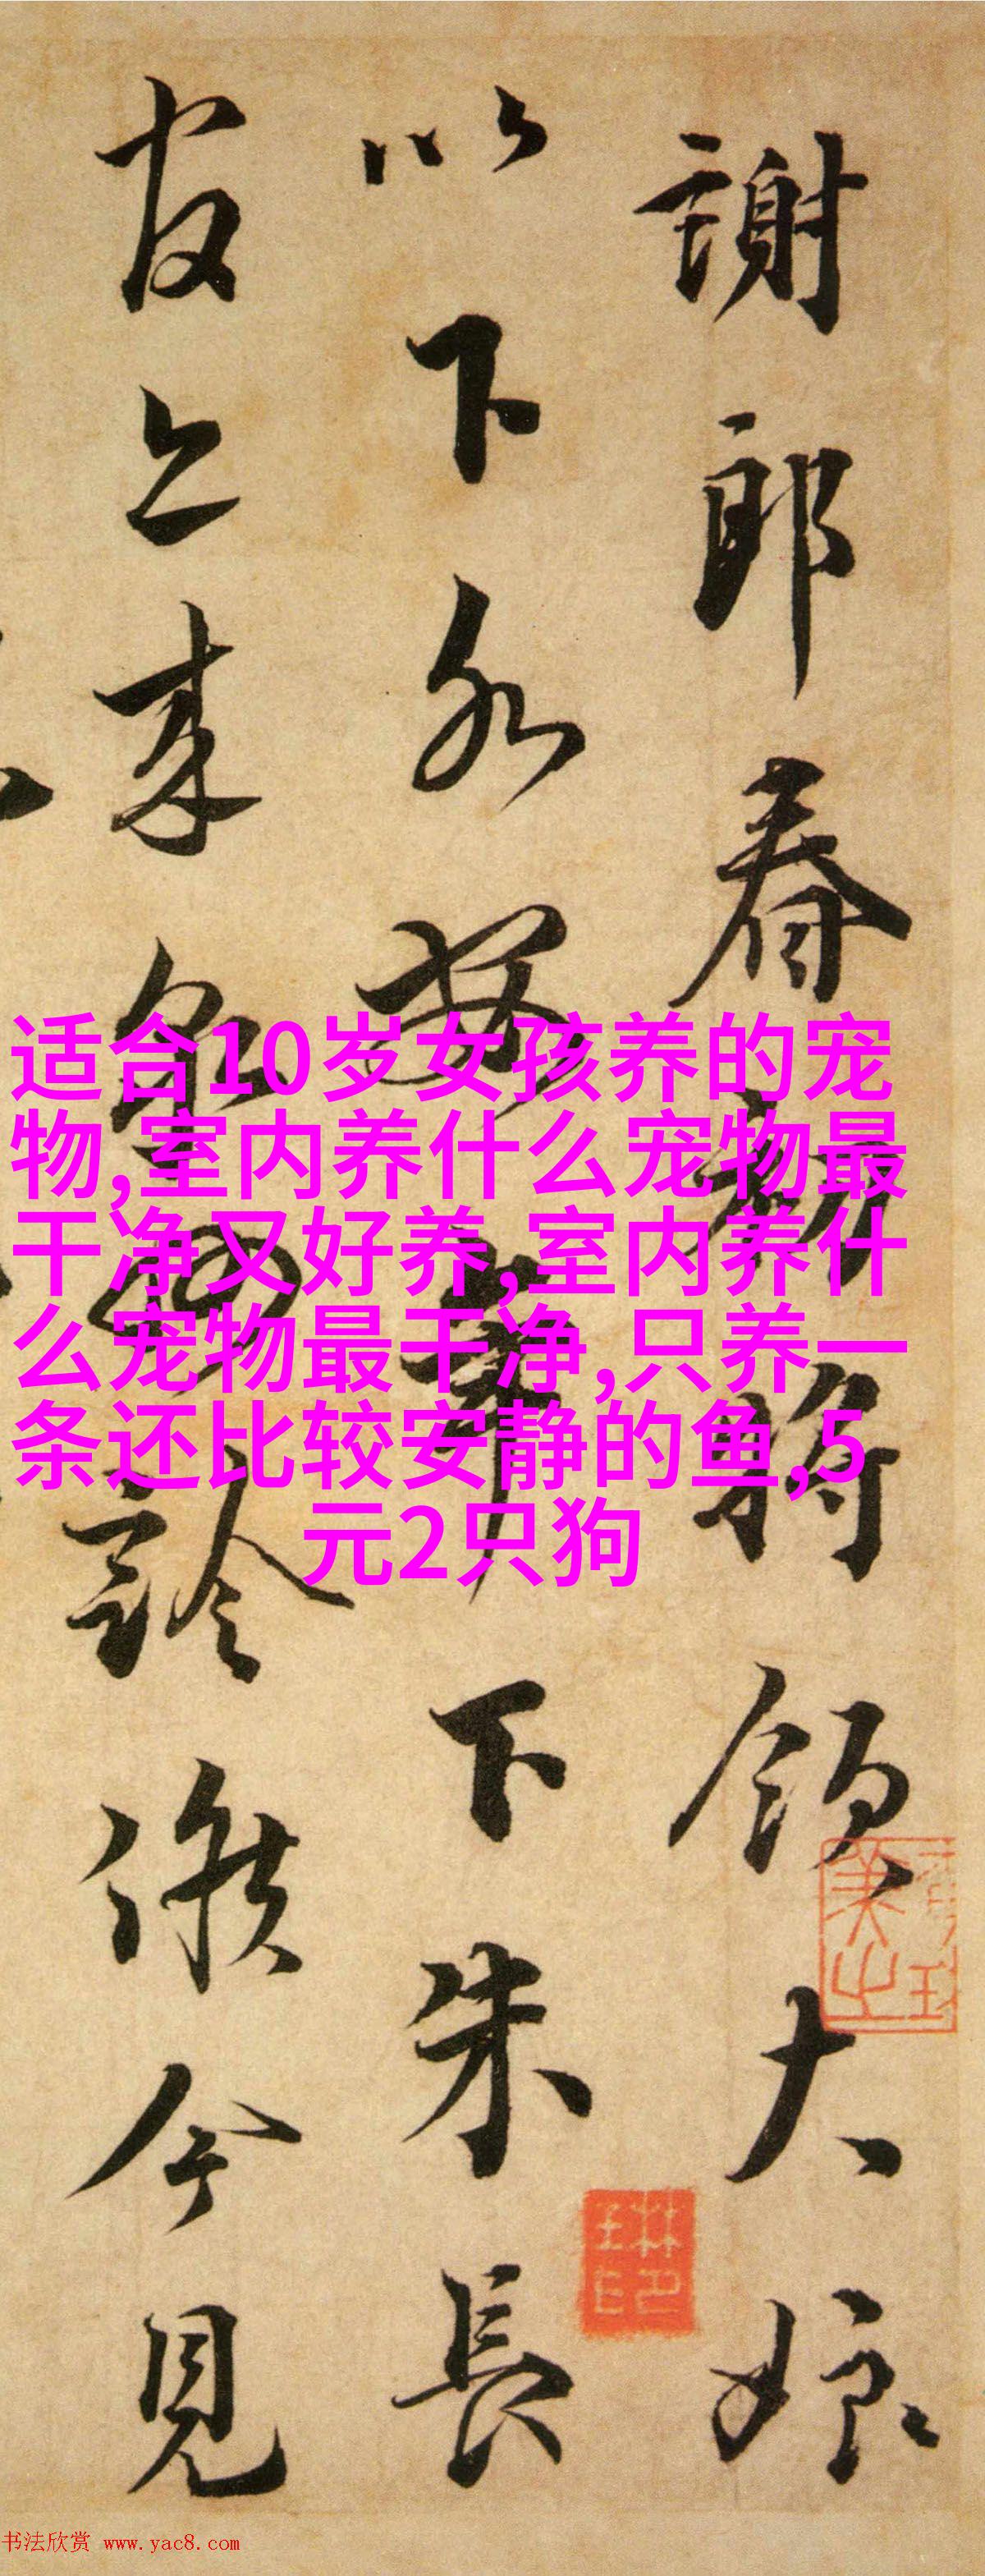 謝郎春初将領大娘
以下各安下朱長
官上来泉候今見
适合10岁女孩养的宠
物,室内养什么宠物最
干净又好养,室内养什
么宠物最干净,只养一
条还比较安静的鱼,5
元2只狗
书法欣赏 www.yac8.com